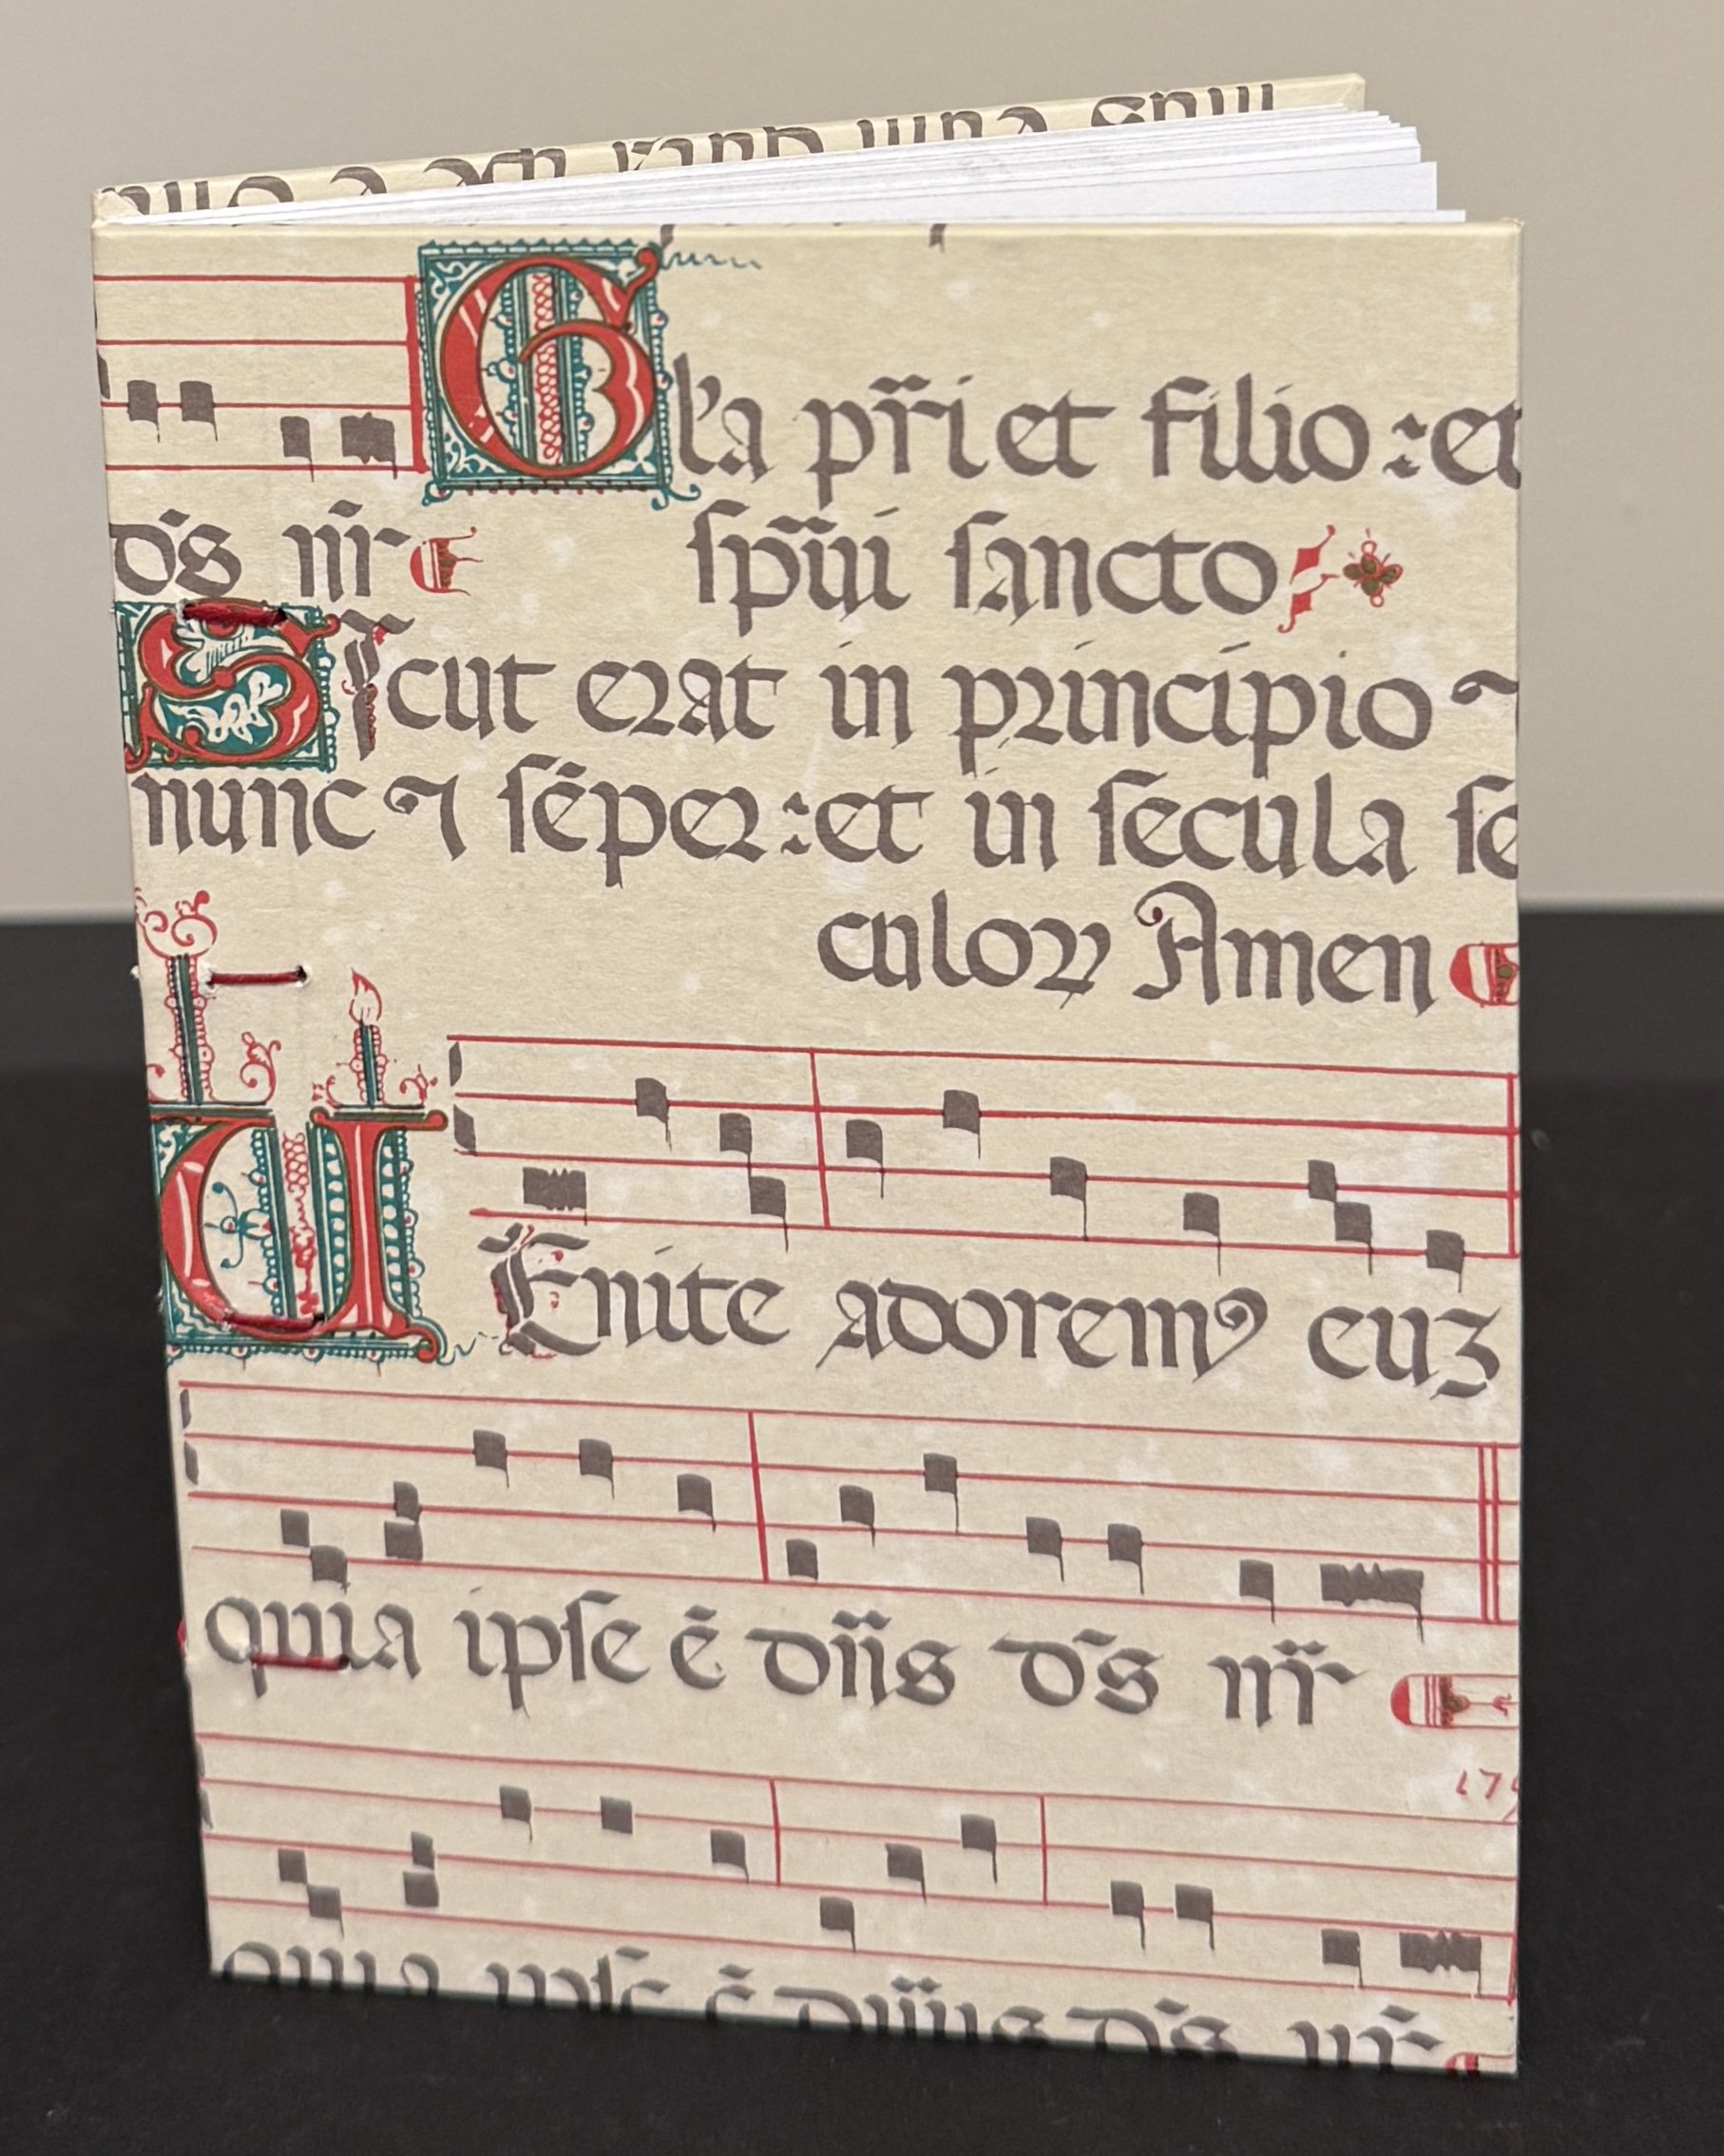 Gl'a pr̄i et filio : et
dn̄s nr̄
sp̄ui sancto
SIcut erat in principio ⁊
nunc ⁊ sēper : et in secula se
culoꝝ Amen
UEnite adoremꝰ euʒ
quia ipse ē dn̄s ds̄ nr̄
179
quia ipse ē dn̄s ds̄ nr̄